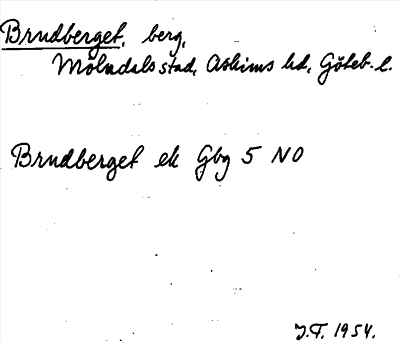 Brudberget, berg,
Mölndals stad, Askims hd, Göteb. l.
Brudberget ek Gbg 5 NO
J.F. 1954.